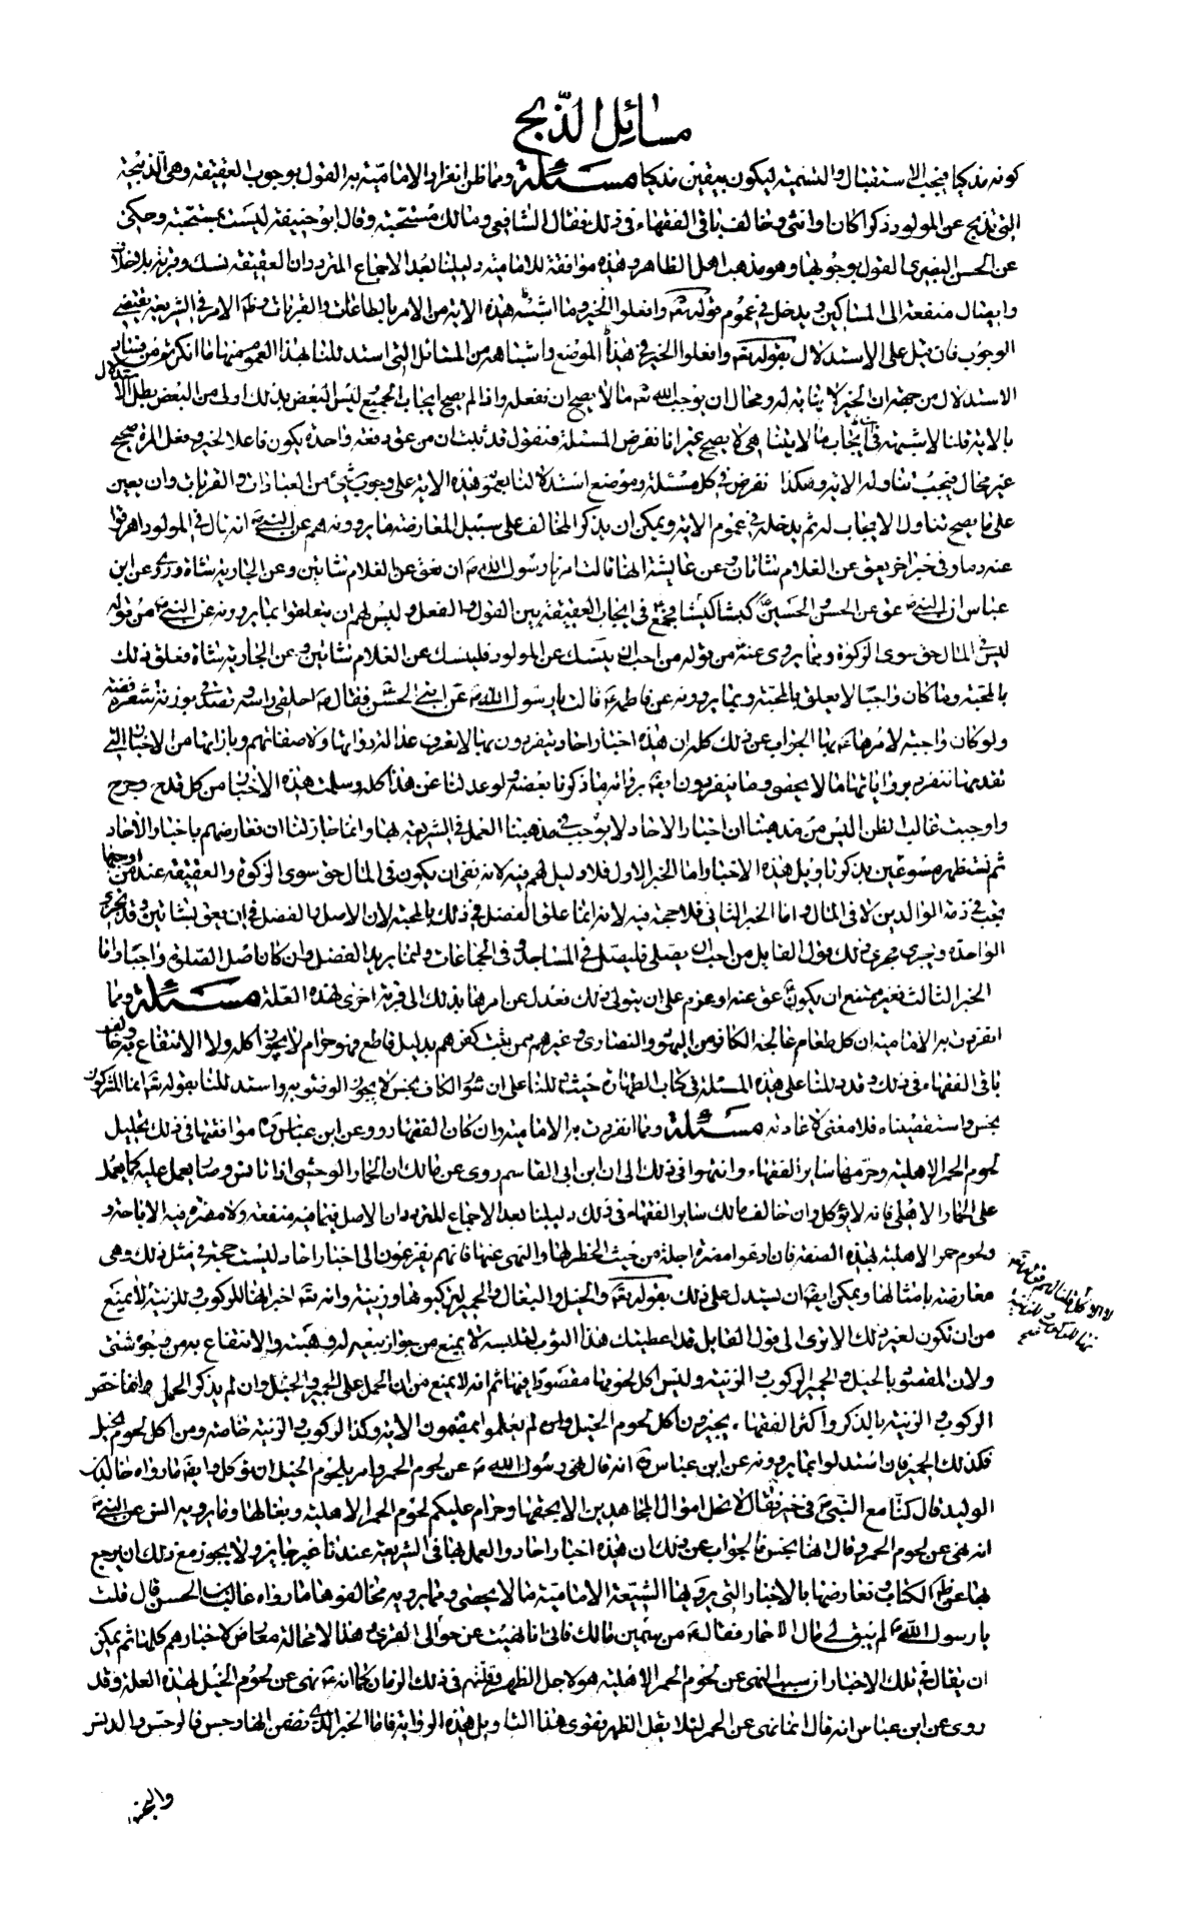 مسائل الذبح
كونه مذكيا فيجب الاستقبال والتسمية ليكون بيقين مذكيا مسئلة ومما ظن انفراد الامامية به القول بوجوب العقيقة وهى الذبيحة
التى تذبح عن المولود ذكرا كان او انثى وخالف باقى الفقهاء فى ذلك فقال الشافعى ومالك مستحبة وقال ابو حنيفة ليست بمستحبة وحكى
عن الحسن البصرى القول بوجوبها وهو مذهب اهل الظاهر وهذه موافقة للامامية دليلنا بعد الاجماع المتردد ان العقيقة نسك وقربة بلا خلاف
وايصال منفعة الى المساكين ويدخل فى عموم قوله تعـ وافعلوا الخير وما اشبه هذه الاية من الامر بالطاعات والقربات وظـ الامر فى الشريعة يقتضى
الوجوب فان قيل على الاستدلال بقوله تعـ وافعلوا الخير فى هذا الموضع واشباهه من المسائل التى استدللنا بهذا العموم منها ما انكرتم من فساد
الاستدلال من جهة ان الخير لا نهاية له ومحال ان يوجب الله تعـ ما لا يصح ان نفعله واذا لم يصح ايجاب الجميع ليس البعض بذلك اولى من البعض بطل الاستدلال
بالاية قلنا لا شبهة فى ان ايجاب ما لا يتناهى لا يصح غير انا نفرض المسئلة فنقول قد ثبت ان من عق دفعة واحدة يكون فاعلا لخير وفعل المرة صحيح
غير محال فيجب تناول الاية له وهكذا نفرض فى كل مسئلة وموضع استدللنا بعموم هذه الاية على وجوب شئ من العبادات والقربات وان يعين
على ما يصح تناول الايجاب له ثم يدخله فى عموم الاية ويمكن ان يذكر المخالف على سبيل المعارضة ما يروونه هم عن النبى ص انه قال فى المولود اهرقوا
عنه دما وفى خبر اخر يعق عن الغلام شاتان وعن عايشة انها قالت امرنا رسول الله ص ان نعق عن الغلام شاتين وعن الجارية شاة وروى عن ابن
عباس ان النبى ص عق عن الحسن والحسين كبشا كبشا فجمع فى ايجاب العقيقة بين القول والفعل وليس لهم ان يتعلقوا بما يروونه عن النبى ص من قوله
ليس فى المال حق سوى الزكوة وبما يروى عنه من قوله من احب ان ينسك عن المولود فلينسك عن الغلام شاتين وعن الجارية شاة فعلق ذلك
بالمحبة وما كان واجبا لا يعلق بالمحبة وبما يروونه عن فاطمة ع قالت يا رسول الله ص اعق عن ابنى الحسن فقال ص احلقى راسه وتصدقى بوزن شعره فضة
ولو كان واجبة لامرها ع بها الجواب عن ذلك كله ان هذه اخبار احاد ينفردون بها لا نعرف عدالة رواتها ولا صفاتهم وبازائها من الاخبار التى
نقدمها ننفرد برواياتها ما لا يحصى وما ينفردون ايضا بروايته ما ذكرنا بعضه ولو عدلنا عن هذا كله وسلمت هذه الاخبار من كل قدح وجرح
واوجبت غالب الظن اليس من مذهبنا ان اخبار الاحاد لا يوجب فى مذهبنا العمل فى الشريعة بها وانما جاز لنا ان نعارضهم باخبار الاحاد
ثم نستظهر متبرعين بذكر تاويل هذه الاخبار اما الخبر الاول فلا دليل لهم فيه لانه نفى ان يكون فى المال حق سوى الزكوة والعقيقة عند من اوجبها
تجب فى ذمة الوالدين لا فى المال واما الخبر الثانى فلا حجة فيه لانه انما علق الفضل فى ذلك بالمحبة لان الاصل والفضل فى ان يعق بشاتين وقد تجزى
الواحدة ويجرى مجرى ذلك قول القايل من احب ان يصلى فليصل فى المساجد وفى الجماعات وانما يريد الفضل وان كان اصل الصلوة واجبا واما
الخبر الثالث فغير ممتنع ان يكون ص عق عنه او عزم على ان يتولى ذلك فعدل عن امرها بذلك الى قربة اخرى لهذه العلة مسئلة ومما
انفردت به الامامية ان كل طعام عالجه الكافر من اليهود والنصارى وغيرهم ممن يثبت كفرهم بدليل قاطع فهو حرام لا يجوز اكله ولا الانتفاع به وخالف
باقى الفقهاء فى ذلك وقد دللنا على هذه المسئلة فى كتاب الطهارة حيث دللنا على ان سؤر الكافر نجس لا يجوز الوضوء به واستدللنا بقوله تعـ انما المشركون
نجس واستقصيناه فلا معنى لاعادته مسئلة ومما انفردت به الامامية وان كان الفقهاء رووا عن ابن عباس ره موافقتها فى ذلك تحليل
لحوم الحمر الاهلية وحرمها ساير الفقهاء وانتهوا فى ذلك الى ان ابن ابى القاسم روى عن مالك ان الحمار الوحشى اذا تانس وصار يعمل عليه كما يعمل
على الحمار الاهلى فانه لا يؤكل وان خالف مالك ساير الفقهاء فى ذلك دليلنا بعد الاجماع المتردد ان الاصل فيما فيه منفعة ولا مضرة فيه الاباحة و
ولحوم حمر الاهلية بهذه الصفة فان ادعوا مضرة اجلة من حيث الحظر لها والنهى عنها فانهم يفزعون الى اخبار احاد ليست حجة فى مثل ذلك وهى
معارضة بامثالها ويمكن ايضا ان يستدل على ذلك بقوله تعـ والخيل والبغال والحمير لتركبوها وزينة وانه تعـ اخبر انها للركوب وللزينة لا يمنع
من ان تكون لغير ذلك الا ترى الى قول القايل قد اعطيتك هذا الثوب لتلبسه لا يمنع من جواز بيعه له وهبته والانتفاع به من وجوه شتى
ولان المقصود بالخيل والحمير الركوب والزينة وليس اكل لحومها مقصودا فيها ثم انه لا يمنع من ان الحمل على الحمير والخيل وان لم يذكر الحمل وانما خص
الركوب والزينة بالذكر واكثر الفقهاء يجيزون اكل لحوم الخيل وان لم يعملوا بمضمون الاية وكذا الركوب والزينة خاصة ومن اكل لحوم الخيل
فكذلك الحمير فان استدلوا بما يروونه عن ابن عباس ره انه قال نهى رسول الله ص عن لحوم الحمر وامر بلحوم الخيل ان توكل وايضا ما رواه خالد بن
الوليد قال كنا مع النبى ص فى خيبر فقال لا تحل اموال المجاهدين الا بحقها وحرام عليكم لحوم الحمر الاهلية وبغالها وما يرويه انس عن النبى ص
انه نهى عن لحوم الحمر وقال انها نجس فالجواب عن ذلك ان هذه اخبار احاد والعمل بها فى الشريعة عندنا غير جايز ولا يجوز مع ذلك ان يرجع
بها عن ظـ الكتاب ونعارضها بالاخبار التى يرويها الشيعة الامامية ما لا يحصى ومما يرويه مخالفوها ما رواه غالب بن الحسن قال قلت
يا رسول الله لم يبق لى مال الا حمار فقال ص من سمين مالك فانى انما نهيت عن حوالى القرى وهذا لا محالة معارض لاخبارهم كلها ثم يمكن
ان يقال فى تلك الاخبار ان سبب النهى عن لحوم الحمر الاهلية هو لاجل الظهر وقلتهم فى ذلك الزمان كما انه ع نهى عن لحوم الخيل لهذه العلة وقد
روى عن ابن عباس انه قال انما نهى عن الحمر لئلا يقل الظهر فقوى هذا التاويل هذه الرواية فاما الخبر الذى تضمن انها رجس فالرجس والدنس
والنجس